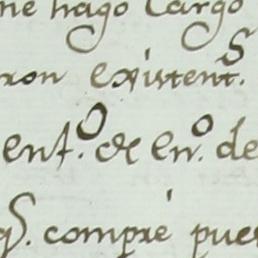 me hago Cargo
ron existent.s
ent.o de En.o de
q.s compré pues